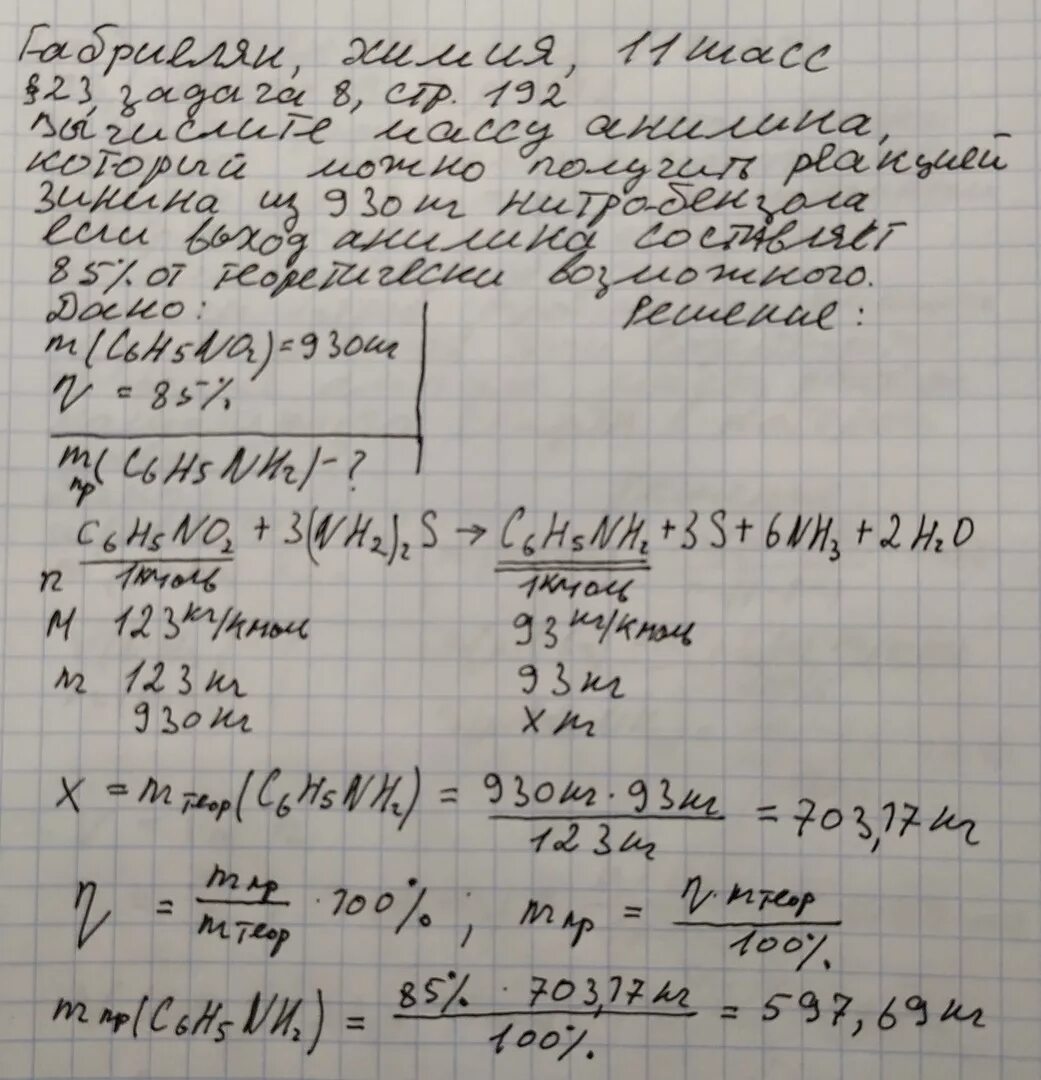 Габриелян, химия, 11 класс
§23, задача 8, стр. 192
Вычислите массу анилина,
который можно получить реакцией
Зинина из 930 кг нитробензола
если выход анилина составляет
85% от теоретически возможного.
Дано: Решение:
m(C₆H₅NO₂)=930кг
η = 85%
mпр(C₆H₅NH₂)-?
C₆H₅NO₂ + 3(NH₂)₂S → C₆H₅NH₂ + 3S + 6NH₃ + 2H₂O
n 1кмоль 1кмоль
M 123 кг/кмоль 93 кг/кмоль
m 123 кг 93 кг
930 кг x кг
X = mтеор(C₆H₅NH₂) = 930кг·93кг / 123кг = 703,17 кг
η = mпр / mтеор · 100% ; mпр = η·mтеор / 100%
mпр(C₆H₅NH₂) = 85% · 703,17 кг / 100% = 597,69 кг